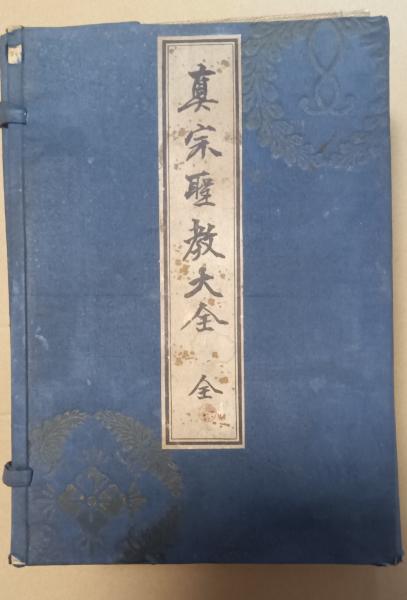 真宗聖教大全 全